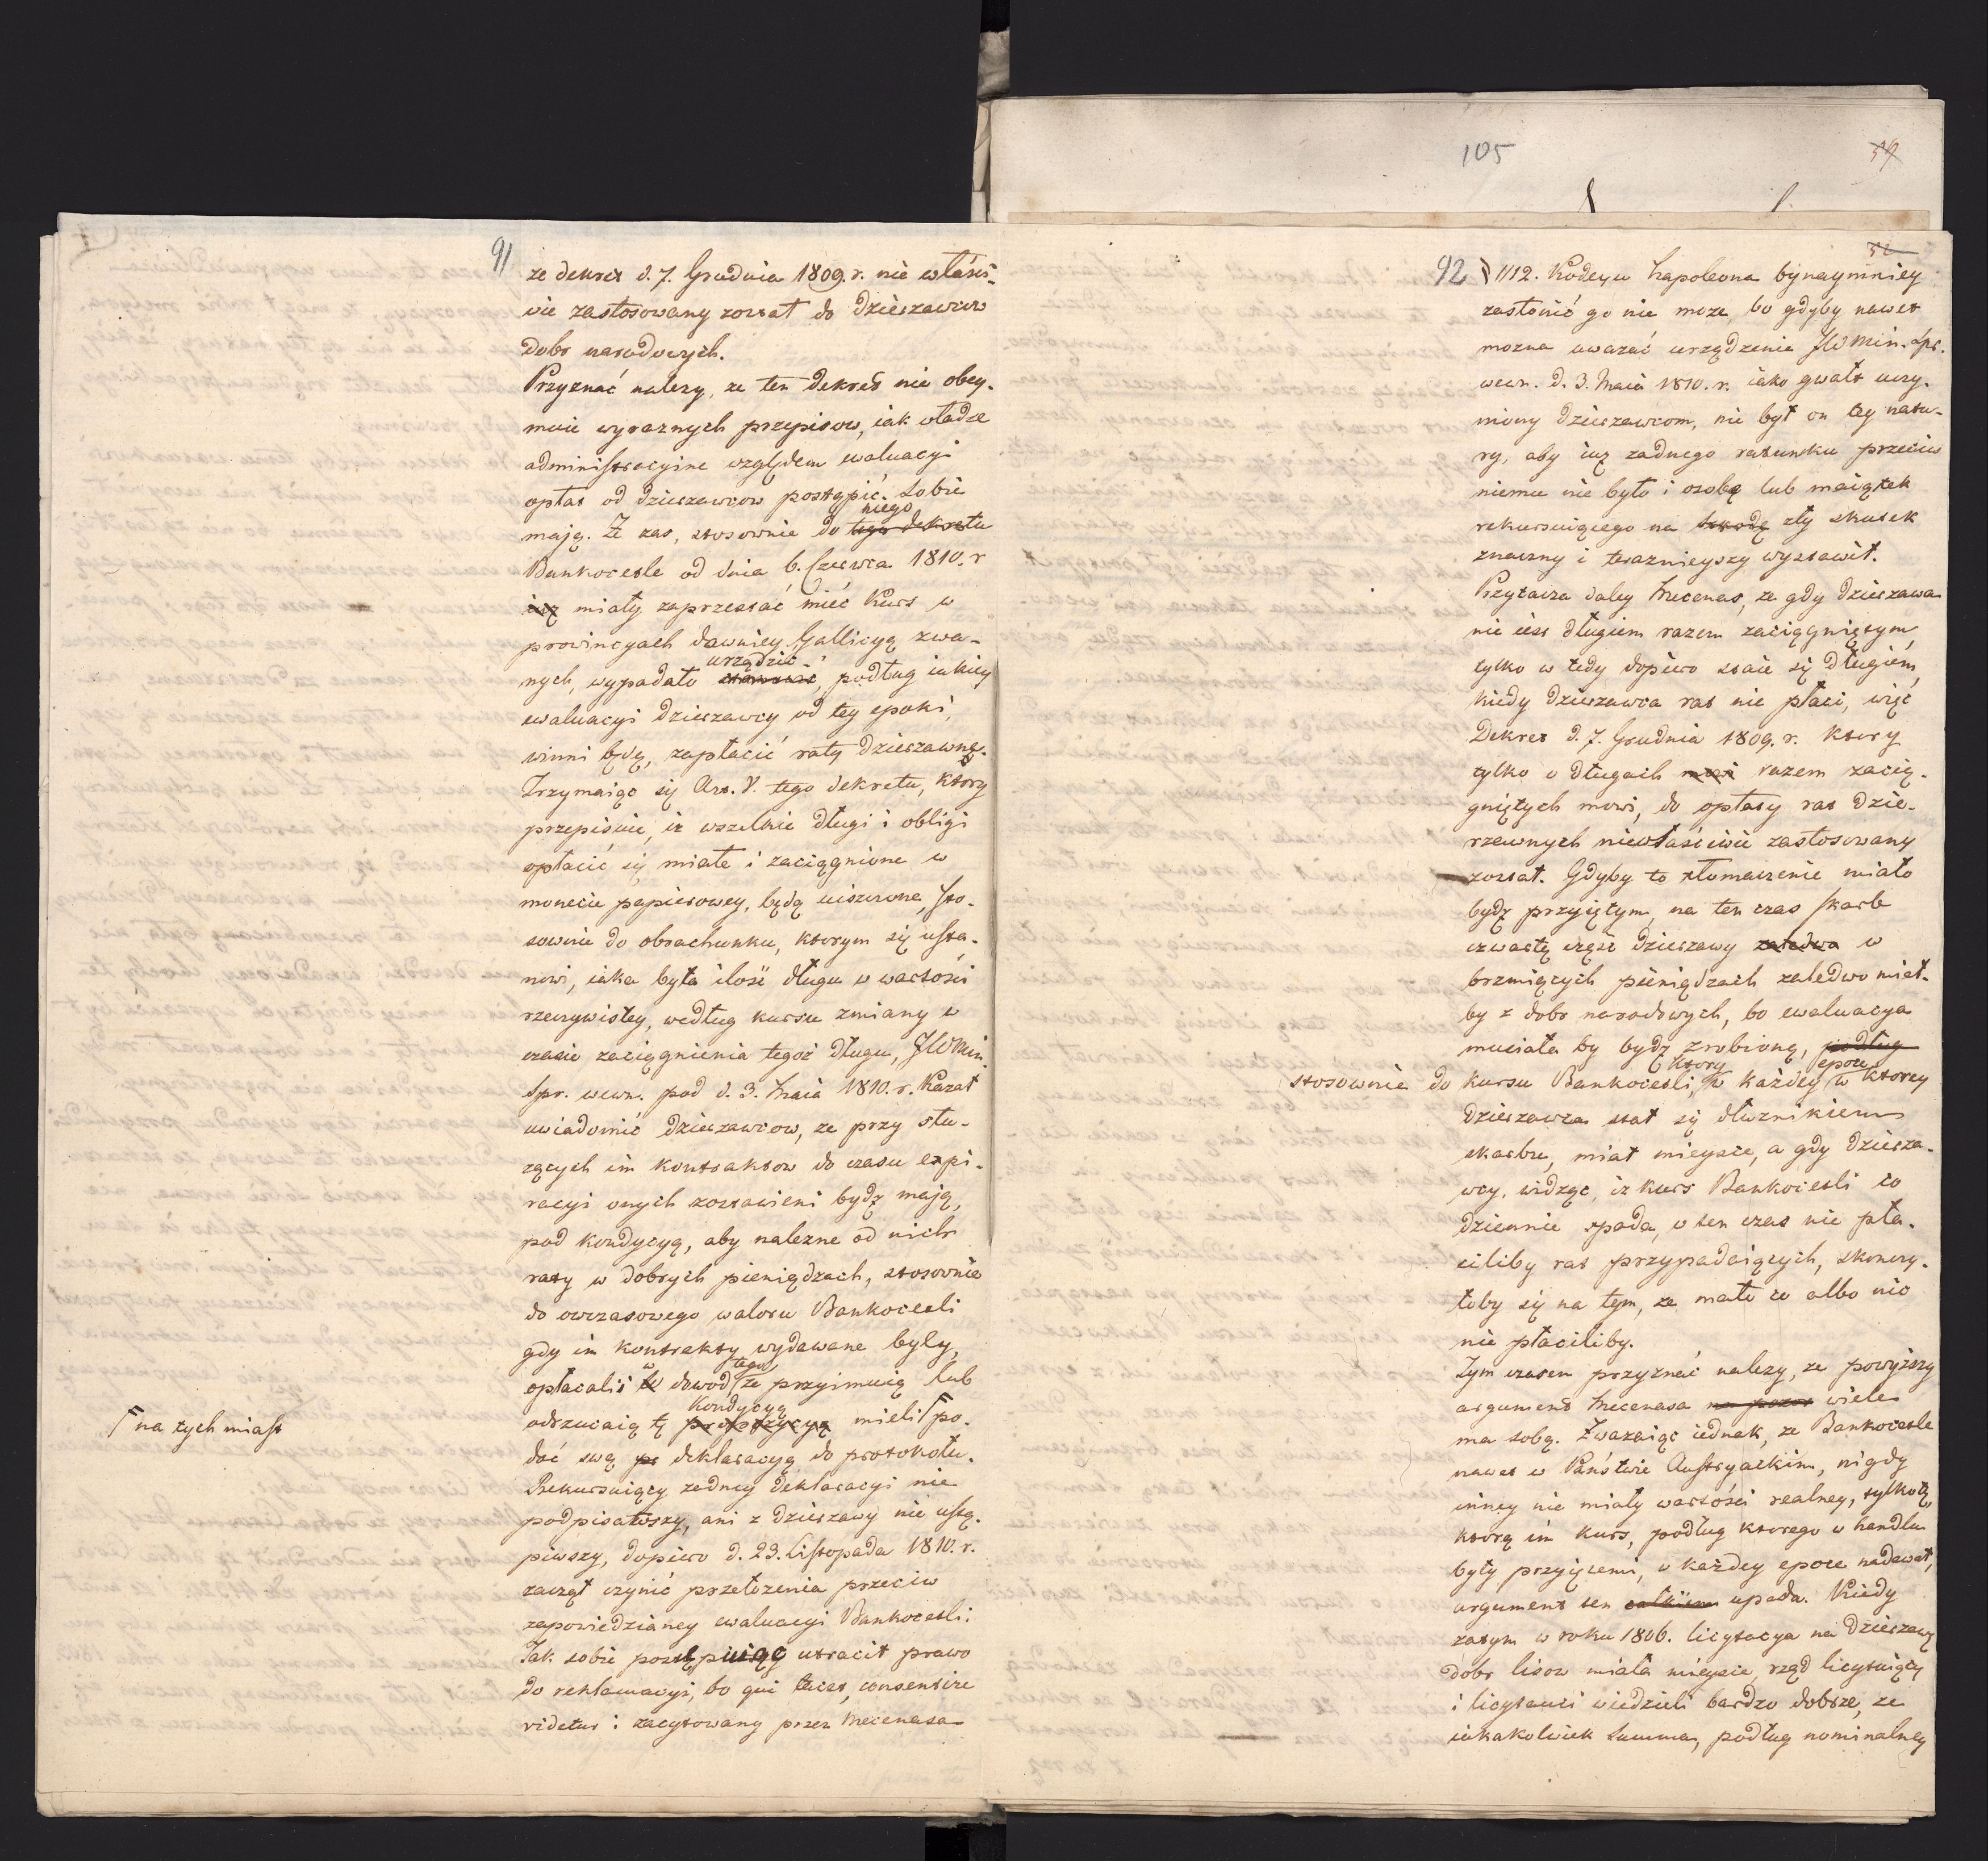 105
91
że dekret d. 7. Grudnia 1809. r. nie właści-
wie zastosowany został do Dzierzawcow
dobr narodowych.
Przyznać należy, że ten Dekret nie obey-
muie wyraznych przepisow, iak władze
administracyine względem ewaluacyi
opłat od dzierzawcow postąpić sobie
mają. Że zas, stosownie do niego tego dekretu
Bankocetle od dnia 6. Czerwca 1810. r
iuż miały zaprzestać mieć Kurs w
prowincyach dawniey Gallicyą zwa-
nych, wypadało urządzić, podług iakiey
ewaluacyi Dzierzawcy od tey epoki,
winni będą, zapłacić ratę Dzierzawną.
Trzymaiąc się Art. V. tego dekretu, ktory
przepisuie, iż wszelkie długi i obligi
opłacić się miałe i zaciągnione w
monecie papierowey, będą uiszczone, sto-
sownie do obrachunku, ktorym się usta-
nowi, iaka była ilość długu w wartości
rzeczywistey, według kursu zmiany w
czasie zaciągnienia tegoż długu, JW Min.
Spr. wewn. pod d. 3. Maia 1810. r. Kazał
uwiadomić dzierzawcow, że przy słu-
zących im kontraktow do czasu expi-
racyi onych zostawieni bydź mają,
pod kondycyą, aby należne od nich
raty w dobrych pieniędzach, stosownie
do owczasowego waloru Bankocetli
gdy im kontrakty wydawane były,
opłacali; w dowod tego że przyimuią lub
odrzucaią tę kondycyą propozycyą mieli Γ po-
Γ na tych miast
dać swą deklaracyą do protokołu.
Rekursuiący żadney deklaracyi nie
podpisawszy, ani z dzierzawy nie ustą-
piwszy, dopiero d. 23. Listopada 1810. r.
zaczął czynić przełożenia przeciw
zapowiedzianey ewaluacyi Bankocetli.
Tak sobie postępuiąc utracił prawo
do reklamacyi, bo qui tacet, consentire
videtur i zacytowany przez Mecenasa
92 § 1112. Kodexu Napoleona bynaymniey
zasłonić go nie moze, bo gdyby nawet
mozna uwazać urządzenie JW Min. Spr.
wewn. d. 3. Maia 1810. r. iako gwałt uczy-
niony Dzierzawcom, nie był on tey natu-
ry, aby iuż zadnego ratunku przeciw
niemu nie było i osobę lub maiątek
rekursuiącego na szkodę zły skutek
znaczny i teraznieyszy wystawił.
Przytacza daley Mecenas, że gdy dzierzawa
nie iest długiem razem zaciągniętym,
tylko w tedy dopiero staie się długiem,
kiedy dzierzawca rat nie płaci, więc
Dekret d. 7. Grudnia 1809. r. ktory
tylko o długach mowi razem zacią-
gniętych mowi, do opłaty rat dzie-
rzawnych niewłaściwie zastosowany
został. Gdyby to tłomaczenie miało
bydź przyiętym, na ten czas skarb
czwartę część dzierzawy zaledwa w
brzmiących pieniądzach zaledwo miał-
by z dobr narodowych, bo ewaluacya
musiała by bydź zrobioną, podług
stosownie do kursu Bankocetli, ktory w każdey epoce w ktorey
Dzierzawca stał się dłuznikiem
skarbu, miał mieysce, a gdy dzierza-
wcy, widząc, iż kurs Bankocetli co
dziennie spada, w ten czas nie pła-
ciliby rat przypadaiących, skonczy-
łoby się na tym, że mało co albo nic
nie płaciliby.
Tym czasem przyznać należy, że powyższy
argument Mecenasa na pozor wiele
ma sobą. Zwazaiąc iednak, że Bankocetle
nawet w Państwie Austryackim, nigdy
inney nie miały wartości realney, tylko tę,
ktorą im kurs, podług ktorego w handlu
były przyięłemi, w każdey epoce nadawał,
argument ten całkiem upada. Kiedy
zatym w roku 1806. licytacya na Dzierzawę
dobr Lisow miała mieysce, rząd licytuiący
i licytanci wiedzieli bardzo dobrze, że
iakakolwiek Summa, podług nominalney